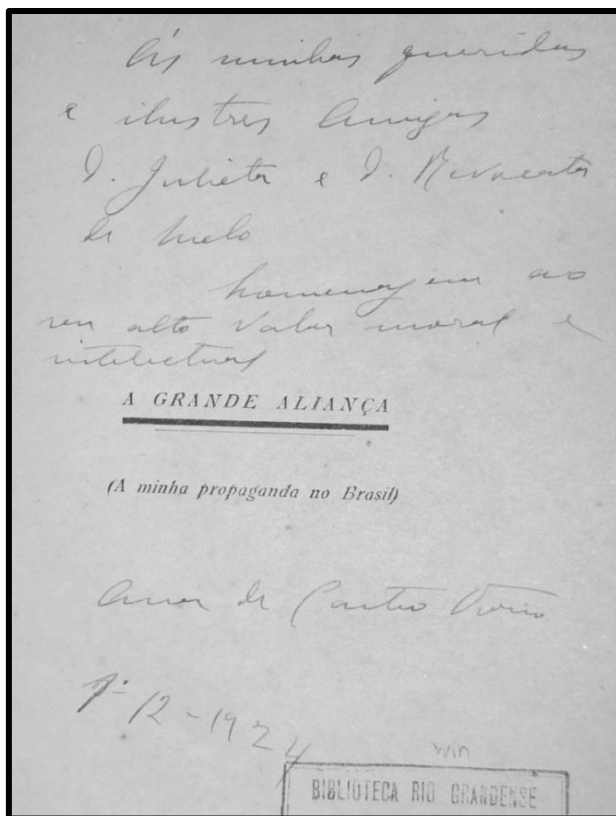 Ás minhas queridas
e ilustres Amigas
D. Julieta e D. Revocata
de Melo
homenagem ao
seu alto valor moral e
intelectual
A GRANDE ALIANÇA
(A minha propaganda no Brasil)
Ana de Castro Osorio
12-1924
Win
BIBLIOTECA RIO GRANDENSE